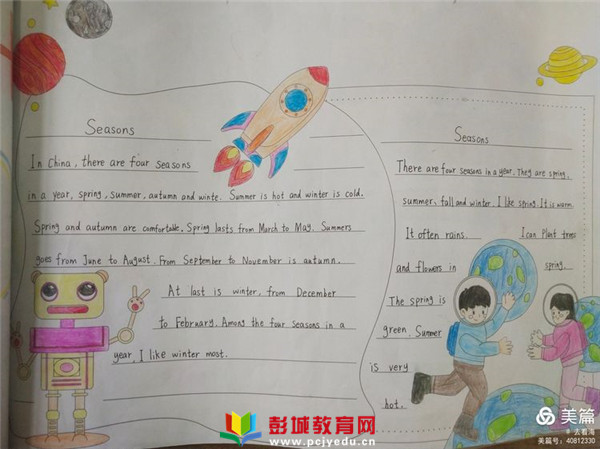 Seasons
In China, there are four seasons
in a year, spring, summer, autumn and winte. Summer is hot and winter is cold.
Spring and autumn are comfortable. Spring lasts from March to May. Summers
goes from June to August. From September to November is autumn.
At last is winter, from December
to February. Among the four seasons in a
year, I like winter most.
Seasons
There are four seasons in a year. They are spring,
summer, fall and winter. I like string. It is warm.
It often rains. I can Plant trees
and flowers in spring.
The spring is
green. Summer
is very
hot.
彭城教育网
www.pcjyedu.cn
美篇
去看海
美篇号：40812330